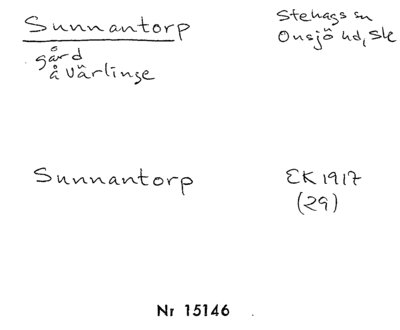 Sunnantorp
Stehags sn
Onsjö hd, Ske
gård
å Värlinge
Sunnantorp
EK 1917
(29)
Nr 15146